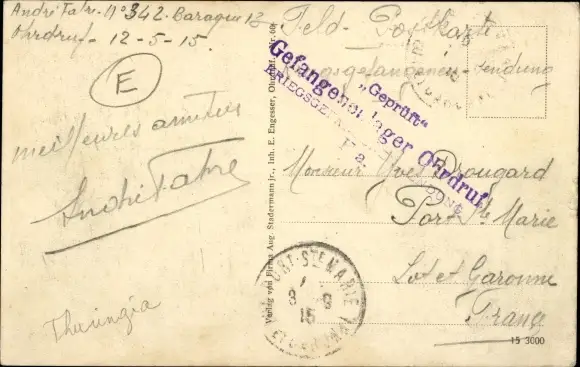 André Fabre. N° 342. Baraque 13
Ohrdruf - 12-5-15.
E
meilleures amitiés
André Fabre
Thuringia
Verlag von Firma Aug. Stadermann jr., Inh. E. Engesser, Ohrdruf.
Feld - Postkarte
Kriegsgefangenen-Sendung
„Geprüft"
Gefangenenlager Ohrdruf
Monsieur Yves Drougard
Port Ste Marie
Lot et Garonne
France
PORT-STE MARIE
LOT-ET-GARONNE
15 3000